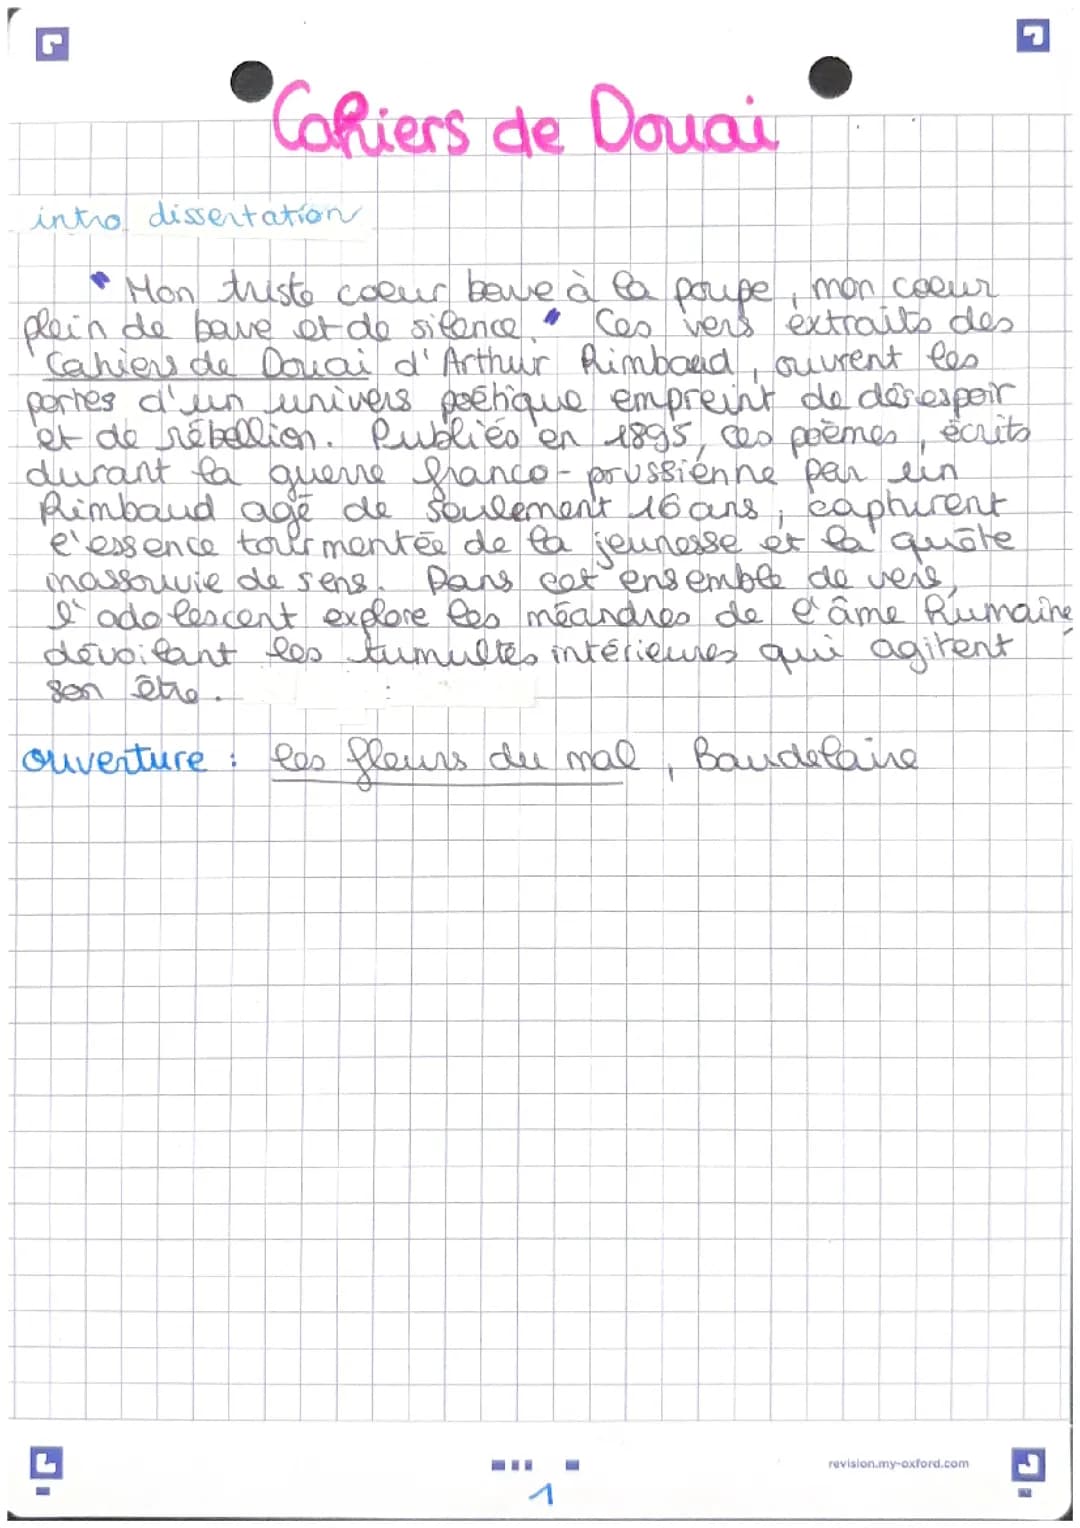 Cahiers de Douai
intro dissertation
" Mon triste coeur bave à la poupe, mon coeur
plein de bave et de silence." Ces vers extraits des
Cahiers de Douai d'Arthur Rimbaud, ouvrent les
portes d'un univers poétique empreint de désespoir
et de rébellion. Publiés en 1895, ces poèmes, écrits
durant la guerre franco-prussienne par un
Rimbaud agé de seulement 16 ans, capturent
l'essence tourmentée de la jeunesse et la quête
inassouvie de sens. Dans cet ensemble de vers,
l'adolescent explore les méandres de l'âme humaine
dévoilant les tumultes intérieures qui agitent
son être.
ouverture : les fleurs du mal, Baudelaire
revision.my-oxford.com
1